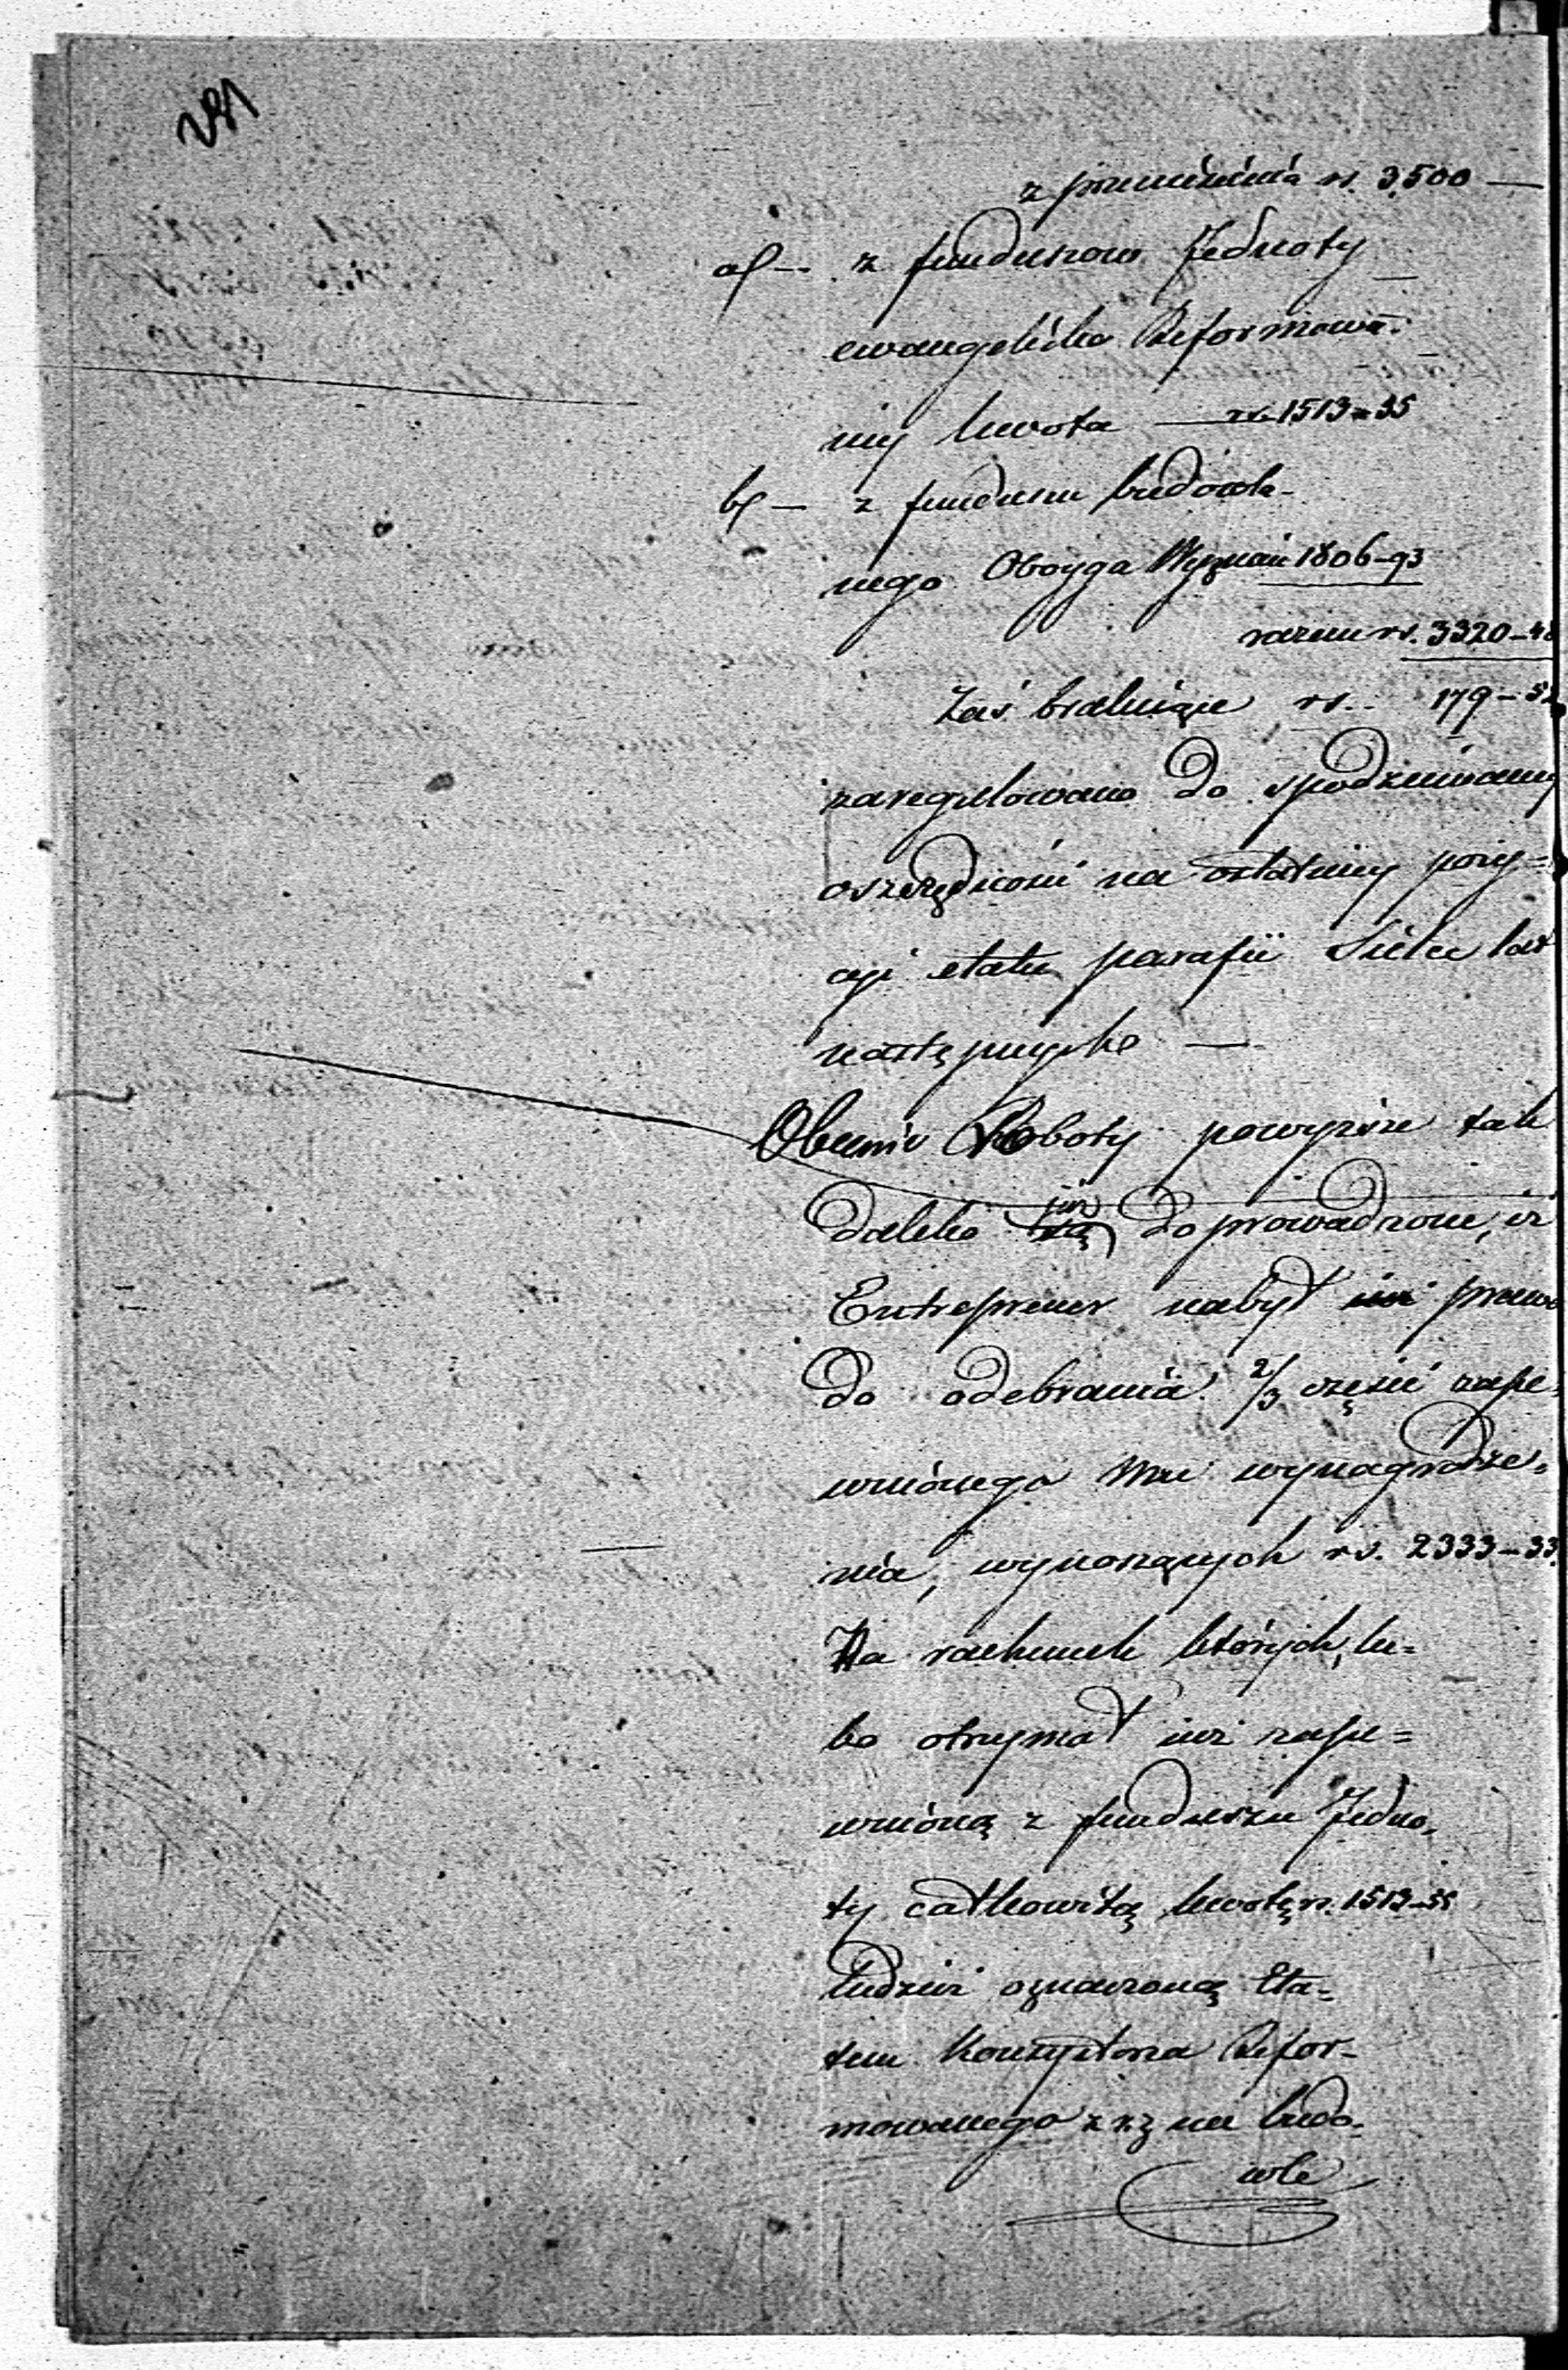 z przeniesienia rs. 3,500 —
a/ — z funduszow Jednoty
ewangelicko Reformowa-
nej kwota — rs. 1513 = 55
b/ — z funduszu budowla-
nego Oboyga Wyznań 1806-93
razem rs. 3320-48
Zaś brakujące rs. 179-52
zaregulowano do spodziewaney
oszczędności na ostatniey pozy=
cyi etatu parafii Sielec lat
następnych —
Obecnie Roboty powyższe tak
daleko już są doprowadzone, iż
Entreprener nabył prawo
do odebrania 2/3 części zape-
wnionego Mu wynagrodze=
nia, wynoszących rs. 2333-33
Na rachunek których, lu=
bo otrzymał iuż zape=
wnioną z funduszu Jedno-
ty całkowitą kwotę rs. 1513-55
tudzież oznaczoną Eta=
tem Konsystorza Refor-
mowanego na budo-
wle